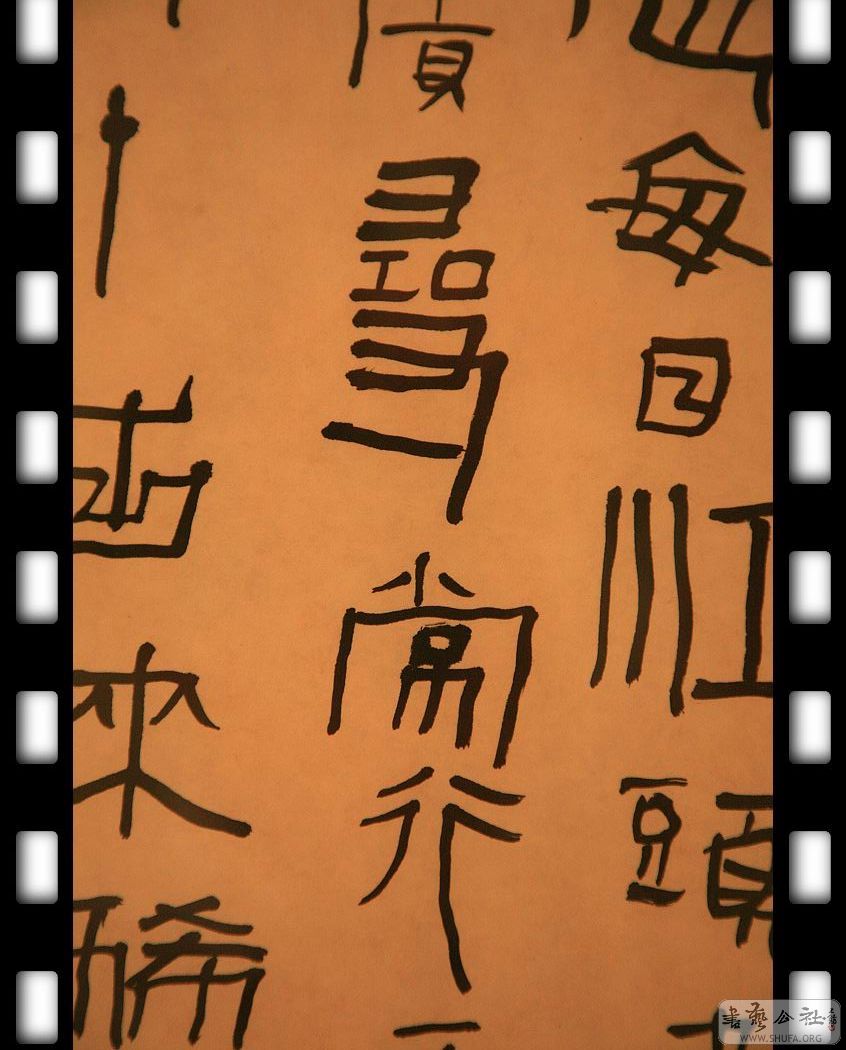 每日江頭
債尋常行
十古來稀
書藝公社
WWW.SHUFA.ORG